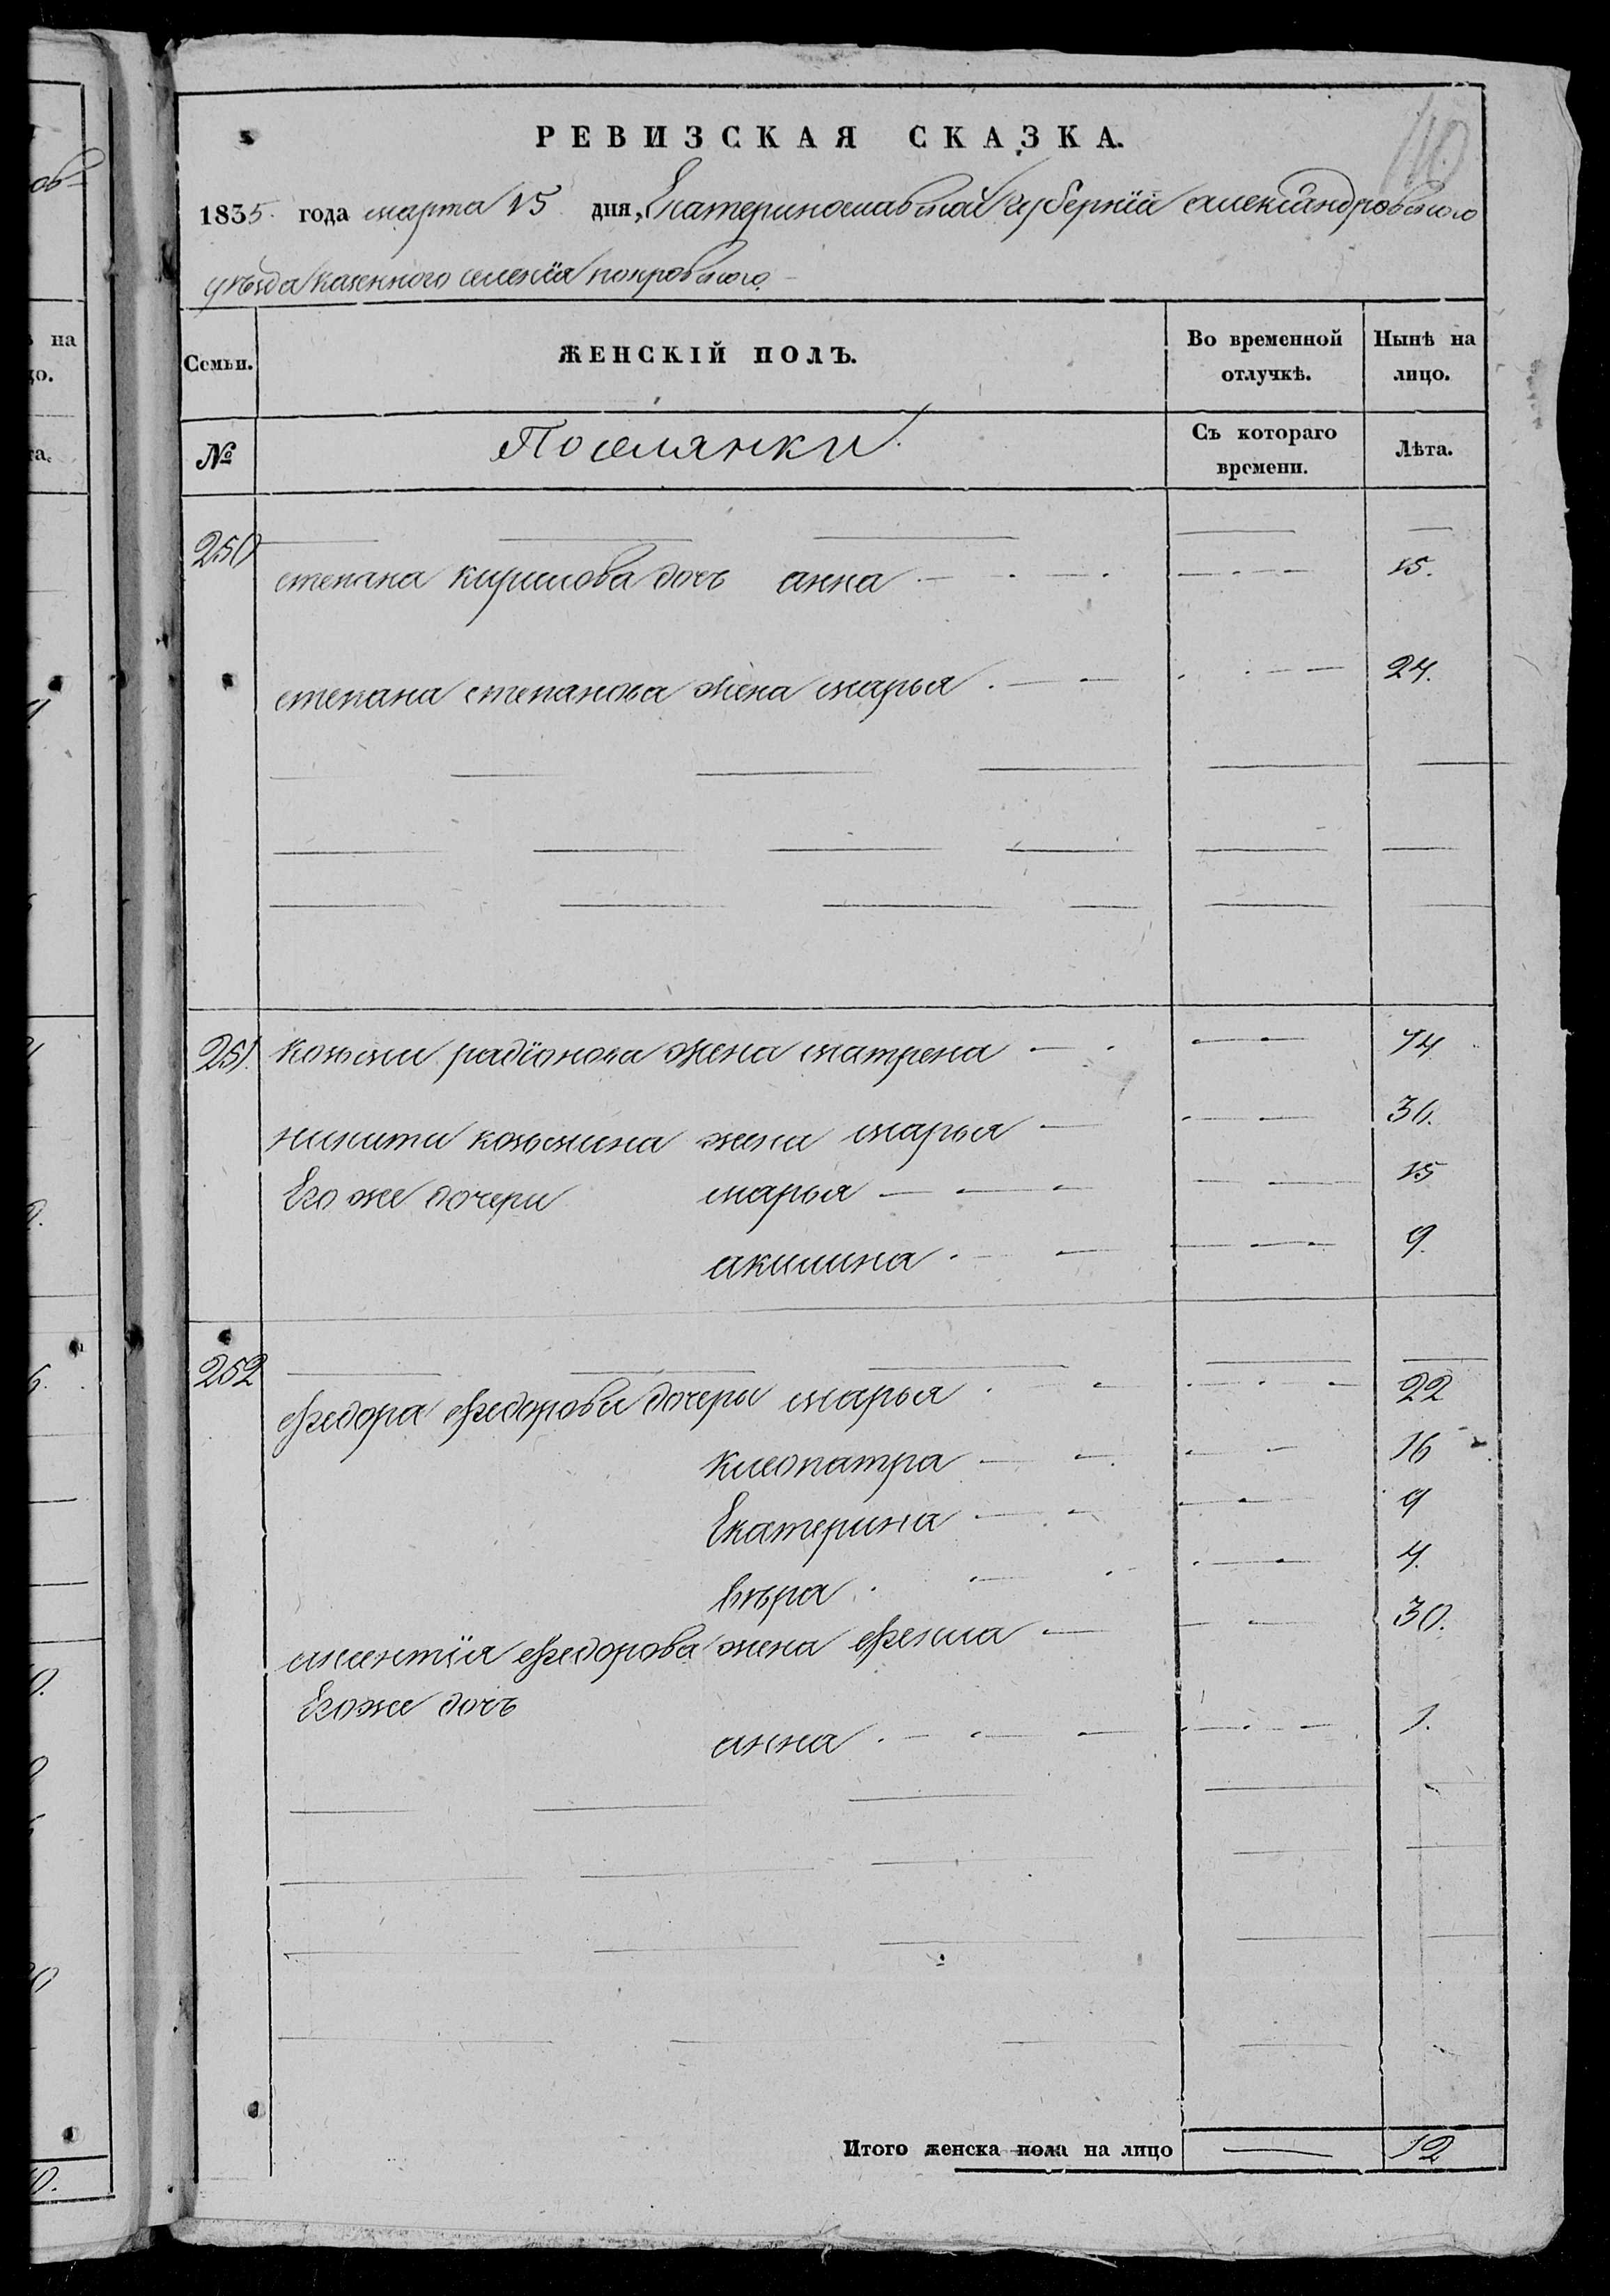 110
РЕВИЗСКАЯ СКАЗКА.
1835. года марта 15 дня, Екатеринославской губернiи александровского
уѣзда казенного селенiя покровского
Семьи. ЖЕНСКІЙ ПОЛЪ. Во временной отлучкѣ. Нынѣ на лицо.
№ Поселянки Съ котораго времени. Лѣта.
250
степана кирилова дочь анна 15.
степана степанова жена марья 24.
251. козьми радiонова жена матрена 74
никити козьмина жена марья 36.
Его же дочери марья 15
акилина 9.
252
федора федорова дочери марья 22
клеопатра 16
Екатерина 9
вѣра 4.
федорова жена фекла 30.
Егоже дочь
анна 1.
Итого женска пола на лицо 12